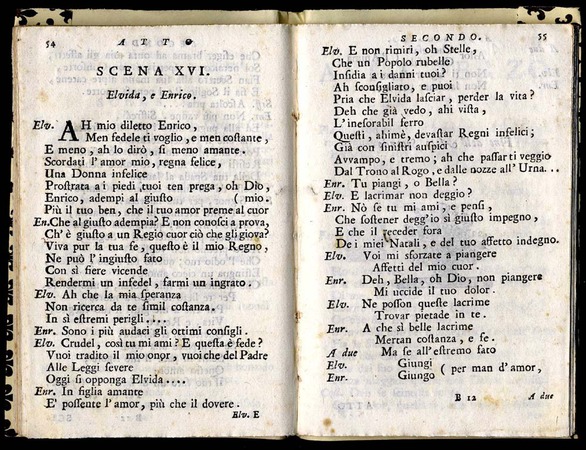 54 ATTO
SCENA XVI.
Elvida, e Enrico.
Elv. AH mio diletto Enrico,
Men fedele ti voglio, e men costante,
E meno, ah lo dirò, sì meno amante.
Scordati l'amor mio, regna felice,
Una Donna infelice
Prostrata ai piedi tuoi ten prega, oh Dio,
Enrico, adempi al giusto ( mio.
Più il tuo ben, che il tuo amor preme al cuor
En. Che al giusto adempia? E non conosci a prova,
Ch'è giusto a un Regio cuor ciò che gli giova?
Viva pur la tua fe, questo è il mio Regno,
Ne può l'ingiusto fato
Con sì fiere vicende
Rendermi un infedel, farmi un ingrato.
Elv. Ah che la mia speranza
Non ricerca da te simil costanza.
In sì estremi perigli....
Enr. Sono i più audaci gli ottimi consigli.
Elv. Crudel, così tu mi ami? E questa è fede?
Vuoi tradito il mio onor, vuoi che del Padre
Alle Leggi severe
Oggi si opponga Elvida....
Enr. In figlia amante
E' possente l'amor, più che il dovere.
Elv. E
SECONDO. 55
Elv. E non rimiri, oh Stelle,
Che un Popolo rubello
Insidia a i danni tuoi?
Ah sconsigliato, e puoi
Pria che Elvida lasciar, perder la vita?
Deh che già vedo, ahi vista,
L'inesorabil ferro
Questi, ahimè, devastar Regni infelici;
Già con sinistri auspici
Avvampo, e tremo; ah che passarti veggio
Dal Trono al Rogo, e dalle nozze all'Urna...
Enr. Tu piangi, o Bella?
Elv. E lacrimar non deggio?
Enr. Nò se tu mi ami, e pensi,
Che sostener degg'io sì giusto impegno,
E che il receder fora
De i miei Natali, e del tuo affetto indegno.
Elv. Voi mi sforzate a piangere
Affetti del mio cuor.
Enr. Deh, Bella, oh Dio, non piangere
Mi uccide il tuo dolor.
Elv. Ne posson queste lacrime
Trovar pietade in te.
Enr. A che sì belle lacrime
Mertan costanza, e fe.
A due Ma se all'estremo fato
Elv. Giungi
Enr. Giungo ( per man d'amor,
B 12 A due